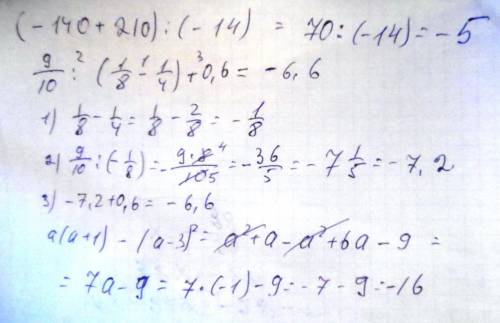 (-140+210):(-14) = 70:(-14)=-5
9/10 :² (1/8 -¹ 1/4) +³ 0,6 = -6,6
1) 1/8 - 1/4 = 1/8 - 2/8 = -1/8
2) 9/10 : (-1/8) = -9·8⁴/10 5 = -36/5 = -7 1/5 = -7,2
3) -7,2+0,6 = -6,6
a(a+1) - (a-3)² = a²+a-a²+6a-9 =
= 7a-9 = 7·(-1)-9=-7-9=-16